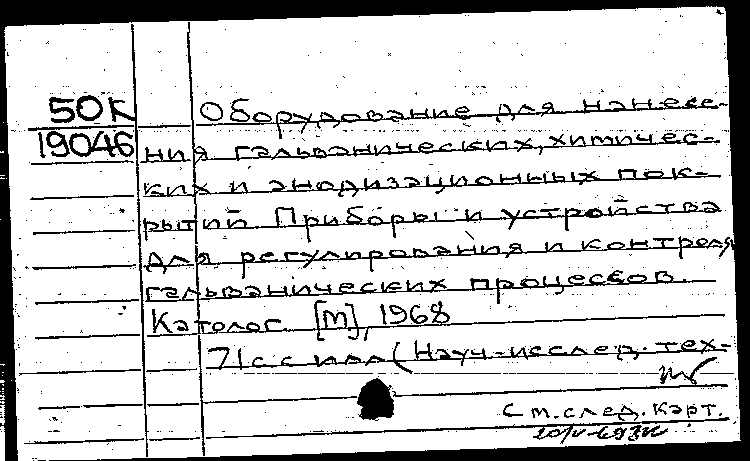 50К
19046
Оборудование для нанесе-
ния гальванических, химичес-
ких и анодизационных пок-
рытий Приборы и устройства
для регулирования и контроля
гальванических процессов.
Каталог [М], 1968
71с с илл (Науч-исслед. тех-
См. след. карт.